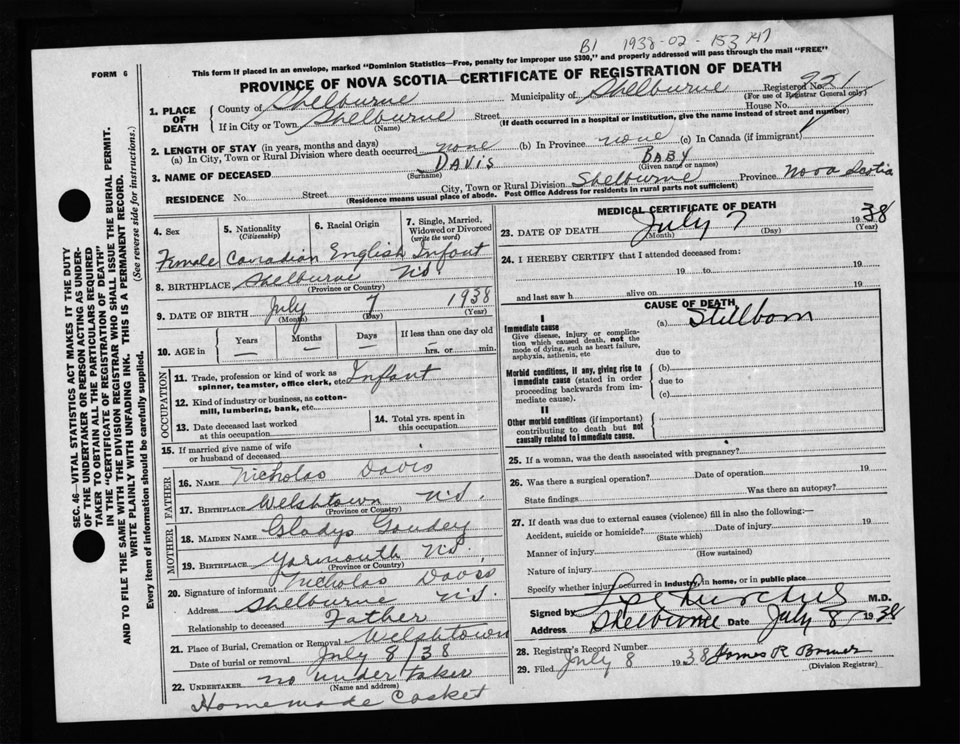 B1 1938-02-153747
This form if placed in an envelope, marked "Dominion Statistics—Free, penalty for improper use $300," and properly addressed will pass through the mail "FREE"
FORM 6
PROVINCE OF NOVA SCOTIA—CERTIFICATE OF REGISTRATION OF DEATH
Registered No. 221
(For use of Registrar General only)
1. PLACE OF DEATH
County of Shelburne Municipality of Shelburne
If in City or Town Shelburne Street House No.
(Name) (If death occurred in a hospital or institution, give the name instead of street and number)
2. LENGTH OF STAY (in years, months and days)
(a) In City, Town or Rural Division where death occurred none (b) In Province none (c) In Canada (if immigrant)
3. NAME OF DECEASED DAVIS BABY
(Surname) (Given name or names)
RESIDENCE No. Street City, Town or Rural Division Shelburne Province Nova Scotia
(Residence means usual place of abode. Post Office Address for residents in rural parts not sufficient)
4. Sex
Female
5. Nationality
(Citizenship)
Canadian
6. Racial Origin
English
7. Single, Married, Widowed or Divorced
(write the word)
Infant
8. BIRTHPLACE Shelburne NS
(Province or Country)
9. DATE OF BIRTH July 7 1938
(Month) (Day) (Year)
10. AGE in Years Months Days If less than one day old
— — — — hrs. or min.
OCCUPATION
11. Trade, profession or kind of work as
spinner, teamster, office clerk, etc. Infant
12. Kind of industry or business, as cotton-
mill, lumbering, bank, etc.
13. Date deceased last worked
at this occupation
14. Total yrs. spent in
this occupation
15. If married give name of wife
or husband of deceased
FATHER
16. NAME Nicholas Davis
17. BIRTHPLACE Welshtown N.S.
(Province or Country)
MOTHER
18. MAIDEN NAME Gladys Goudey
19. BIRTHPLACE Yarmouth N.S.
(Province or Country)
20. Signature of informant Nicholas Davis
Address Shelburne N.S.
Relationship to deceased Father
21. Place of Burial, Cremation or Removal Welshtown
Date of burial or removal July 8/38
22. UNDERTAKER no undertaker
(Name and address)
Homemade Casket
MEDICAL CERTIFICATE OF DEATH
23. DATE OF DEATH July 7 1938
(Month) (Day) (Year)
24. I HEREBY CERTIFY that I attended deceased from:
19 to 19
and last saw h alive on 19
CAUSE OF DEATH
I
Immediate cause
Give disease, injury or complica-
tion which caused death, not the
mode of dying, such as heart failure,
asphyxia, asthenia, etc
(a) Stillborn
due to
Morbid conditions, if any, giving rise to
immediate cause (stated in order
proceeding backwards from im-
mediate cause).
(b)
due to
(c)
II
Other morbid conditions (if important)
contributing to death but not
causally related to immediate cause.
25. If a woman, was the death associated with pregnancy?
26. Was there a surgical operation? Date of operation 19
State findings Was there an autopsy?
27. If death was due to external causes (violence) fill in also the following:—
Accident, suicide or homicide? Date of injury 19
(State which)
Manner of injury
(How sustained)
Nature of injury
Specify whether injury occurred in Industry, in home, or in public place
Signed by M.D.
Address Shelburne Date July 8 1938
28. Registrar's Record Number
29. Filed July 8 1938 James R
(Division Registrar)
SEC. 46—VITAL STATISTICS ACT MAKES IT THE DUTY
OF THE UNDERTAKER OR PERSON ACTING AS UNDER-
TAKER TO OBTAIN ALL THE PARTICULARS REQUIRED
IN THE "CERTIFICATE OF REGISTRATION OF DEATH"
AND TO FILE THE SAME WITH THE DIVISION REGISTRAR WHO SHALL ISSUE THE BURIAL PERMIT.
WRITE PLAINLY WITH UNFADING INK. THIS IS A PERMANENT RECORD.
Every item of information should be carefully supplied. (See reverse side for instructions.)